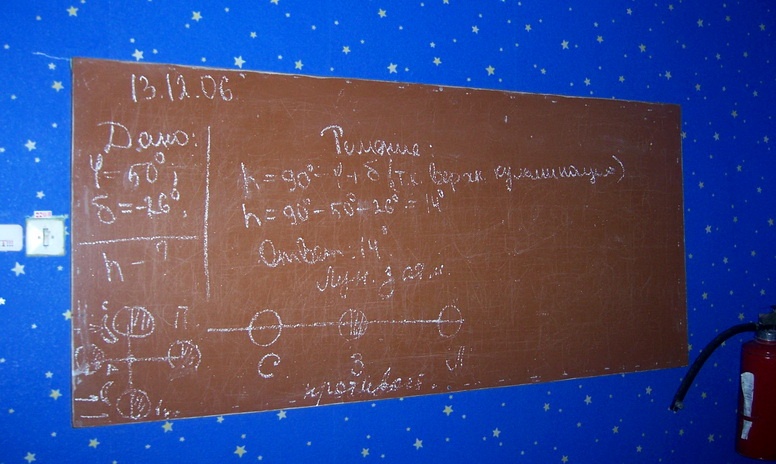 13.12.06
Дано:
φ=50°;
δ=-26°;
h - ?
Решение:
h=90°-φ+δ (т.к. верхн. кульминация)
h=90°-50°-26°=14°
Ответ: 14°
Лун. зат м.
С З Л
противост.
П